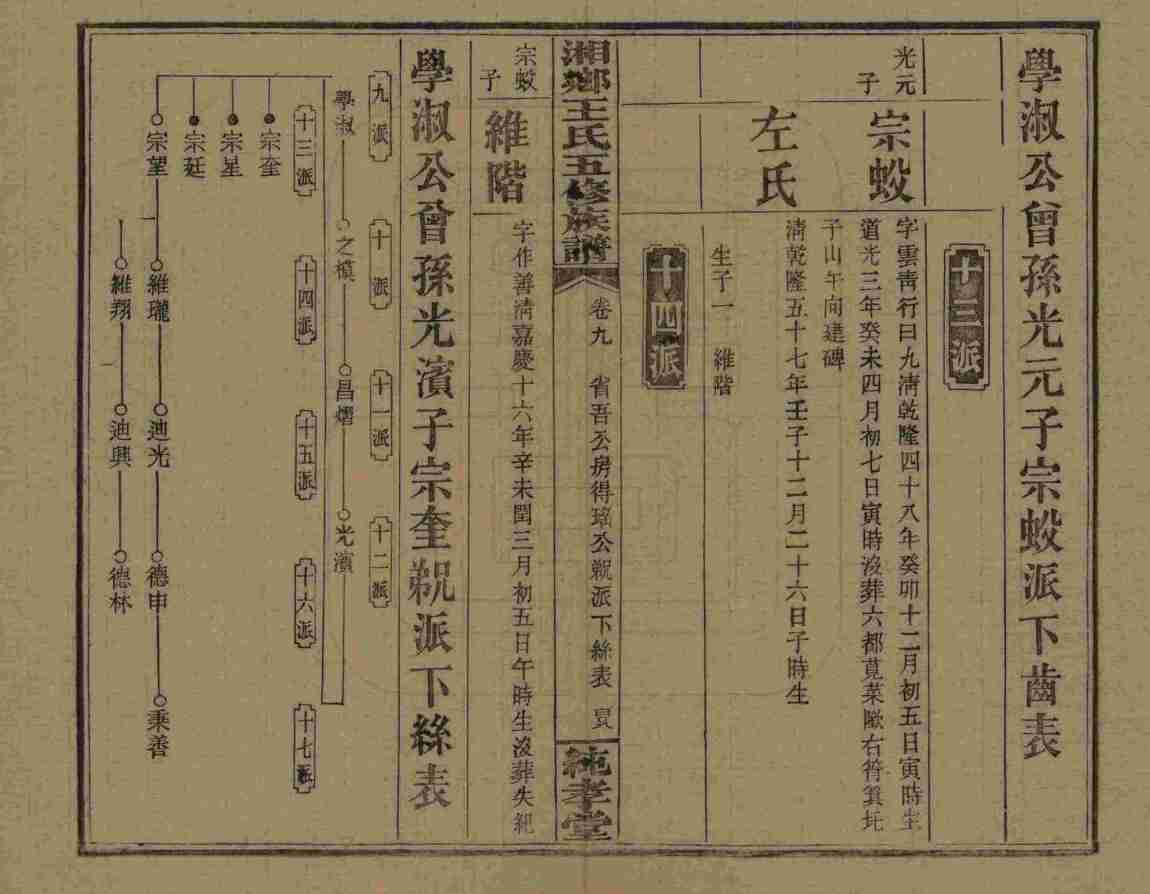 學淑公曾孫光元子宗蛟派下齒表
十三派
光元
子
宗蛟
字雲靑行曰九淸乾隆四十八年癸卯十二月初五日寅時生
道光三年癸未四月初七日寅時沒葬六都莧菜𡼏右符箕坵
子山午向建碑
左氏
淸乾隆五十七年壬子十二月二十六日子時生
生子一 維階
十四派
湘鄉王氏五修族譜
卷九 省吾公房得瑤公派下絲表
純孝堂
宗蛟
子
維階
字作善淸嘉慶十六年辛未閏三月初五日午時生沒葬失紀
學淑公曾孫光濱子宗奎派下絲表
九派
十派
十一派
十二派
學淑
之模
昌熠
光濱
十三派
十四派
十五派
十六派
十七派
宗奎
宗星
宗廷
宗望
維瓏
迪光
德申
秉善
維翔
迪興
德林